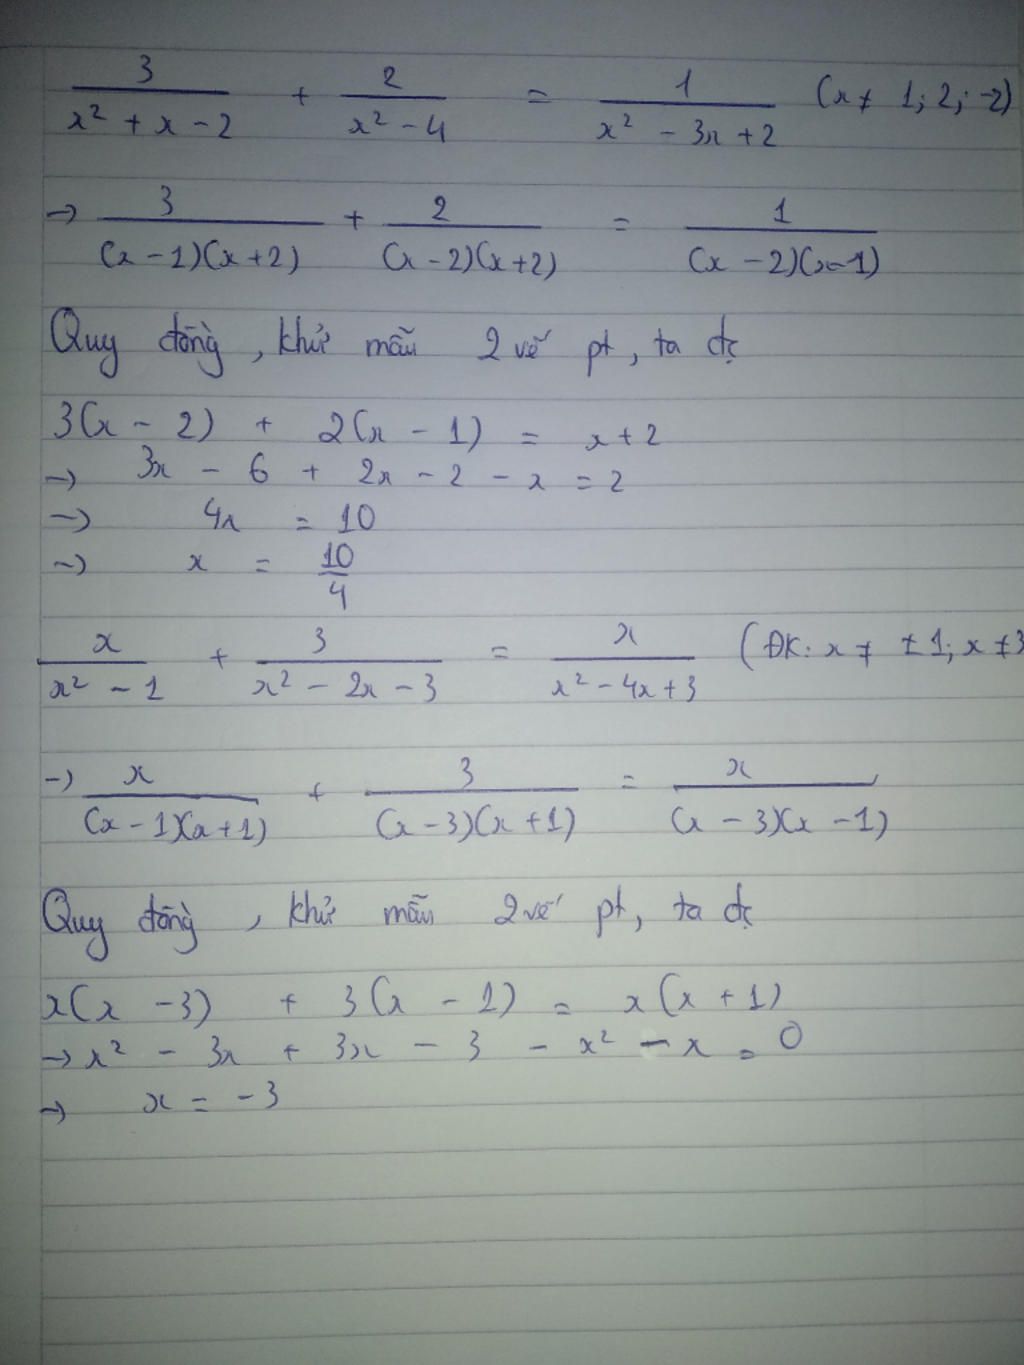 3/(x² + x - 2) + 2/(x² - 4) = 1/(x² - 3x + 2) (x ≠ 1; 2; -2)
→ 3/((x - 1)(x + 2)) + 2/((x - 2)(x + 2)) = 1/((x - 2)(x - 1))
Quy đồng, khử mẫu 2 vế pt, ta đc
3(x - 2) + 2(x - 1) = x + 2
→ 3x - 6 + 2x - 2 - x = 2
→ 4x = 10
→ x = 10/4
x/(x² - 1) + 3/(x² - 2x - 3) = x/(x² - 4x + 3) (ĐK: x ≠ ±1; x ≠ 3
→ x/((x - 1)(x + 1)) + 3/((x - 3)(x + 1)) = x/((x - 3)(x - 1))
Quy đồng, khử mẫu 2 vế pt, ta đc
x(x - 3) + 3(x - 1) = x(x + 1)
→ x² - 3x + 3x - 3 - x² - x = 0
→ x = -3